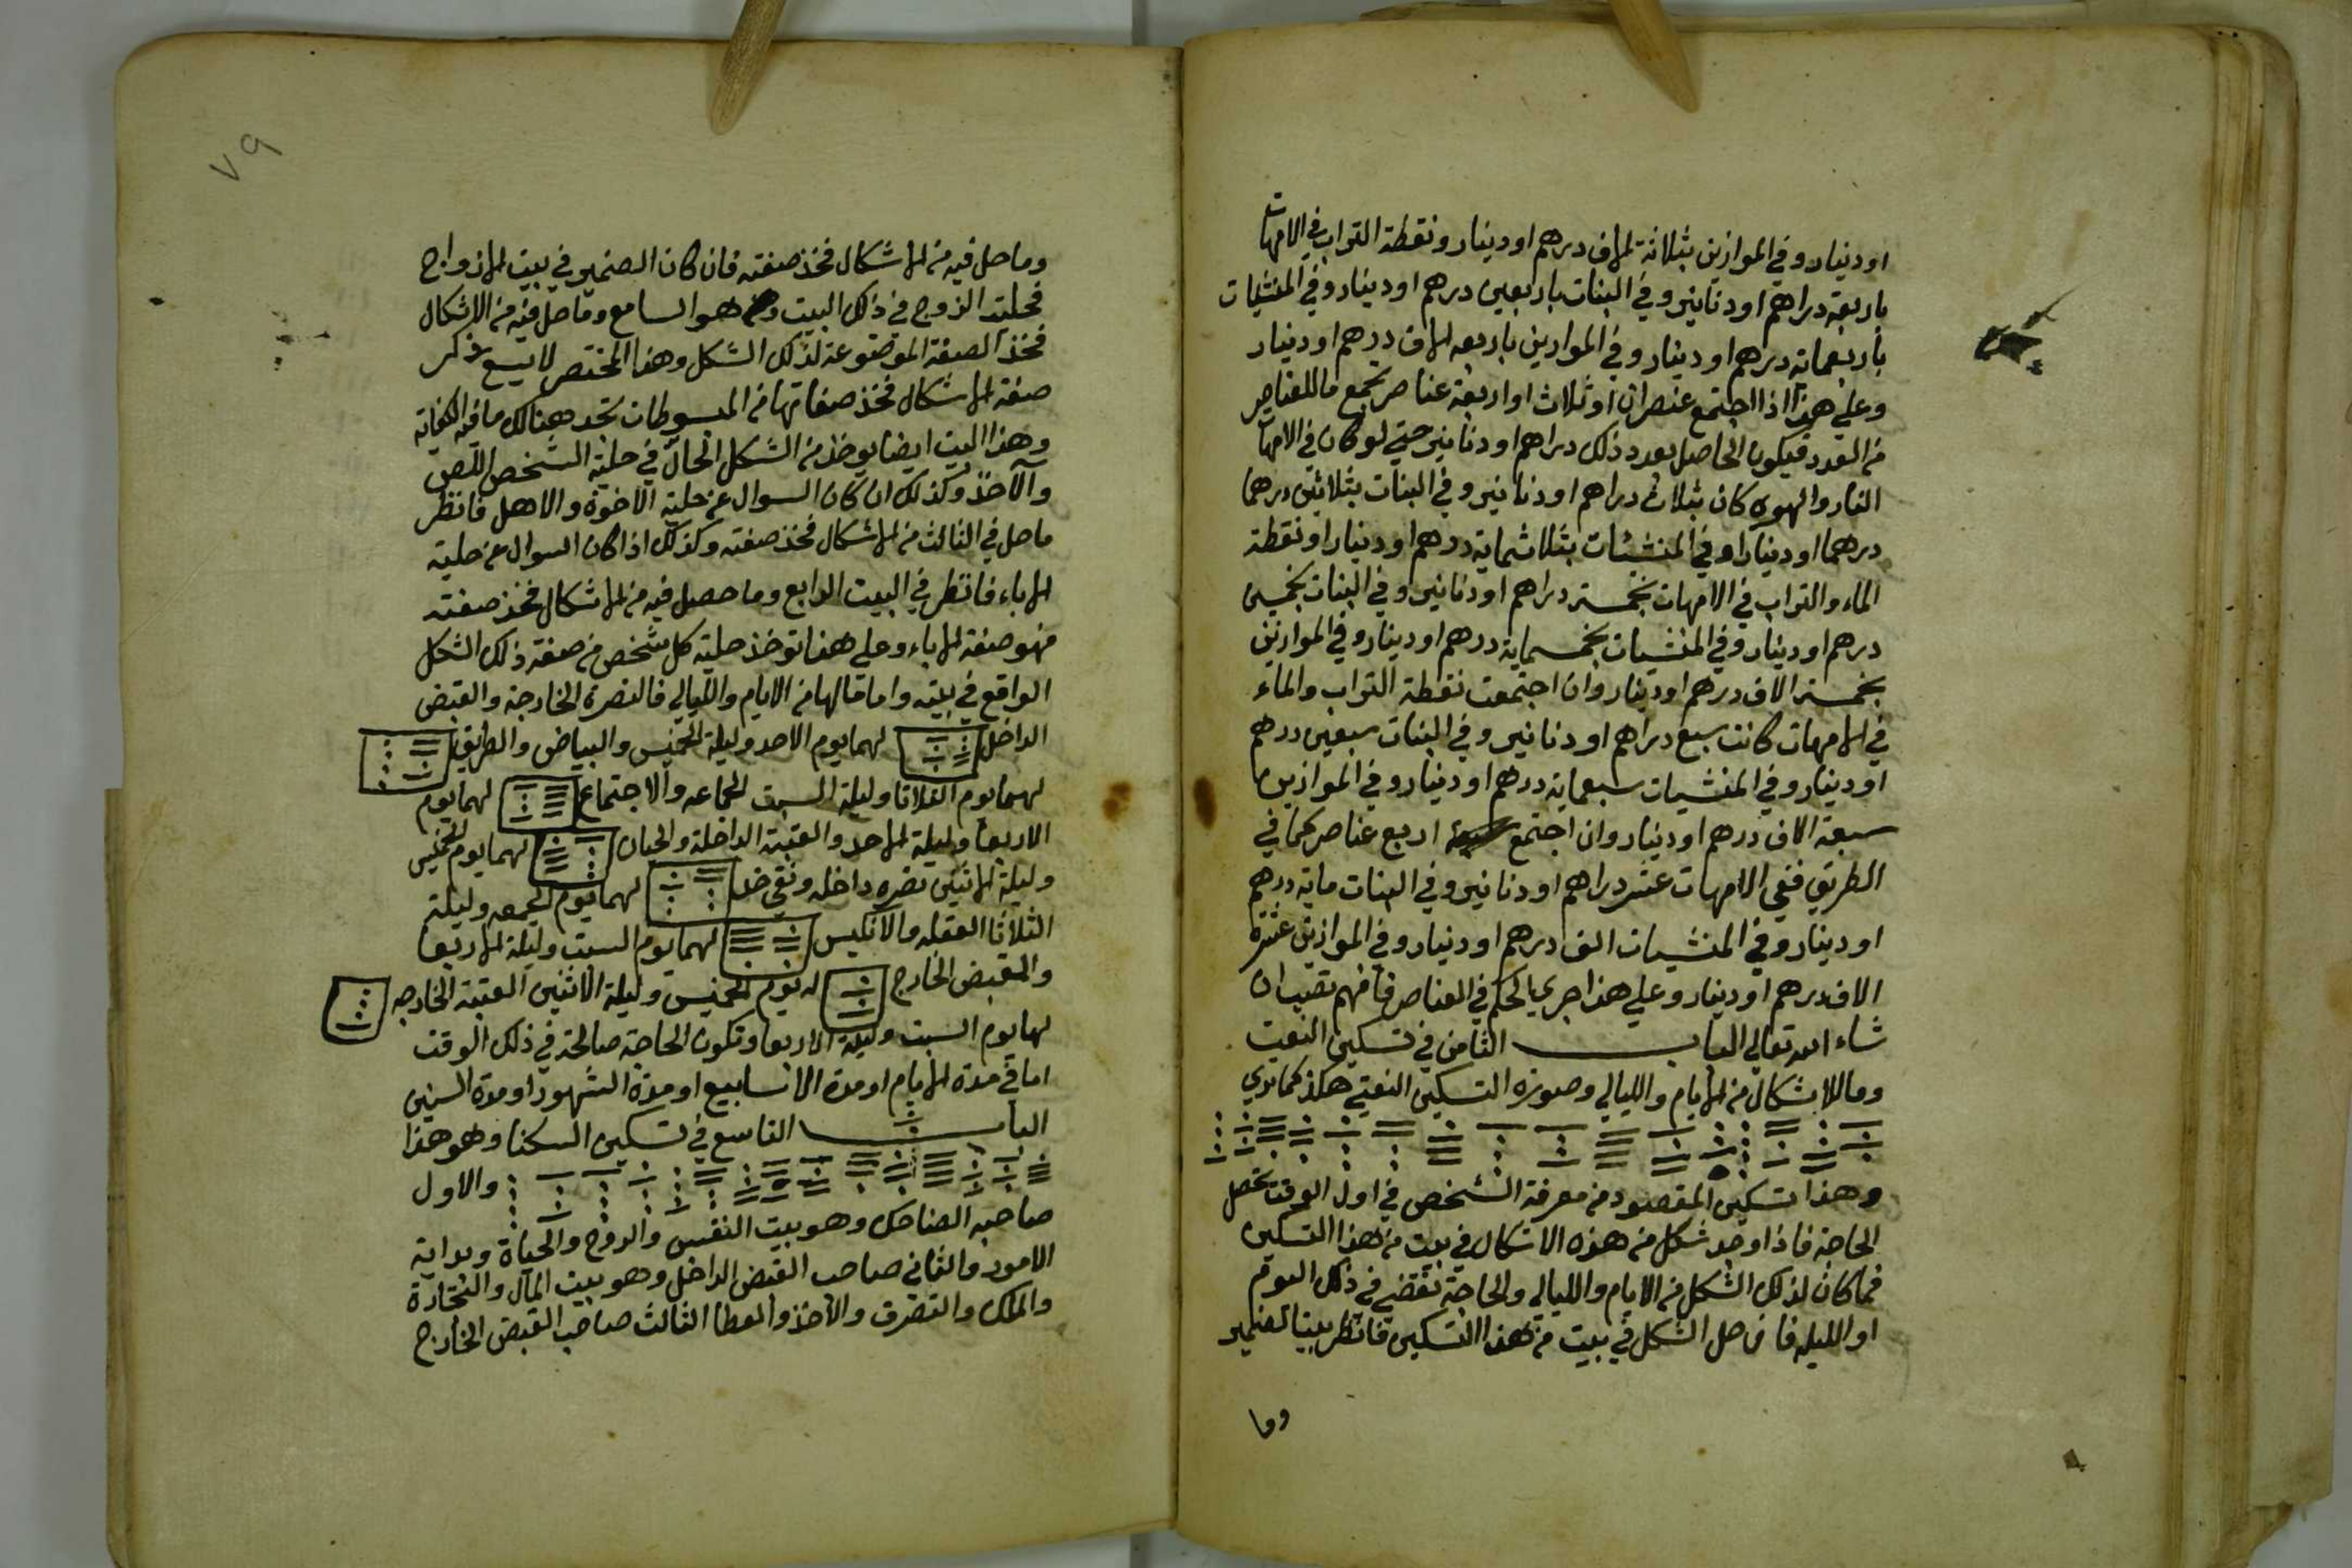 او دينار وفي الموازين بثلاثة الاف درهم او دينار ونقطة التراب في الامهات
باربعة دراهم او دنانير وفي البنات باربعين درهم او دينار وفي المنشيات
باربعماية درهم او دينار وفي الموازين باربعه الاف درهم او دينار
وعلي هذا اذا اجتمع عنصران او ثلاث او اربعة عناصر تجمع ما للعناصر
من العدد فيكون الحاصل بعدد ذلك دراهم او دنانير حتي لو كان في الامهات
النار والهوى كان بثلاث دراهم او دنانير وفي البنات بثلاثين درهما
درهما او دينارا وفي المنشئات بثلاثماية درهم او دينار او نقطة
الماء والتراب في الامهات بخمسة دراهم او دنانير وفي البنات بخمسين
درهم او دينار وفي المنشيات بخمسماية درهم او دينار وفي الموازين
بخمسة الاف درهم او دينار وان اجتمعت نقطة التراب والماء
في الامهات كانت سبع دراهم او دنانير وفي البنات سبعين درهم
او دينار وفي المنشيات سبعماية درهم او دينار وفي الموازين
سبعة الاف درهم او دينار وان اجتمع اربع عناصر كما في
الطريق ففي الامهات عشر دراهم او دنانير وفي البنات ماية درهم
او دينار وفي المنشيات الف درهم او دينار وفي الموازين عشرة
الاف درهم او دينار وعلي هذا جري الحكم في العناصر فافهم تصيب ان
شاء الله تعالي الباب الثامن في تسكين النعت
وما للاشكال من الايام والليالي وصورة التسكين النعتي هكذ كما تري
وهذا تسكين المقصود من معرفة الشخص في اول الوقت تحصل
الحاجة فاذا وجد شكل من هذه الاشكال في بيت من هذا التسكين
فما كان لذلك الشكل من الايام والليالي والحاجة تقضي في ذلك اليوم
او الليله فان حل الشكل في بيت من هذا التسكين فانظر بيت الضمير
وما
٧٩
وما حل فيه من الاشكال فخذ صفته فان كان الضمير في بيت الازواج
فحلية الزوج في ذلك البيت وهو السابع وما حل فيه من الاشكال
فخذ الصفة الموضوعة لذلك الشكل وهذا المختصر لا يسع ذكر
صفة الاشكال فخذ صفاتها من المبسوطات تجد هنالك ما فيه الكفاية
وهذا البيت ايضا يوخذ من الشكل الحال في حلية الشخص اللص
والآخذ وكذلك ان كان السوال عن حلية الاخوة والاهل فانظر
ما حل في الثالث من الاشكال فخذ صفته وكذلك اذا كان السوال عن حلية
الاباء فانظر في البيت الرابع وما حصل فيه من الاشكال فخذ صفته
فهو صفة الاباء وعلي هذا توخذ حلية كل شخص من صفة ذلك الشكل
الواقع في بيته واما ما لها من الايام والليالي فالنصرة الخارجة والقبض
الداخل لهما يوم الاحد وليلة الخميس والبياض والطريق
لهما يوم الثلاثا وليلة السبت الجماعه والاجتماع لهما يوم
الاربعا وليلة الاحد والعتبة الداخلة والحيان لهما يوم الخميس
وليلة الاثنين نصره داخله ونقي خد لهما يوم الجمعه وليلة
الثلاثا العقله والانكيس لهما يوم السبت وليلة الاربعا
والقبض الخارج له يوم الخميس وليلة الاثنين العتبة الخارجه
لها يوم السبت وليلة الاربعا وتكون الحاجة صالحة في ذلك الوقت
اما في مدة الايام او مدة الاسابيع او مدة الشهور او مدة السنين
الباب التاسع في تسكين السكنا وهو هذا
والاول
صاحبه الضاحك وهو بيت النفس والروح والحياة وبداية
الامور والثاني صاحب القبض الداخل وهو بيت المال والتجارة
والملك والتصرف والاخذ والعطا الثالث صاحب القبض الخارج